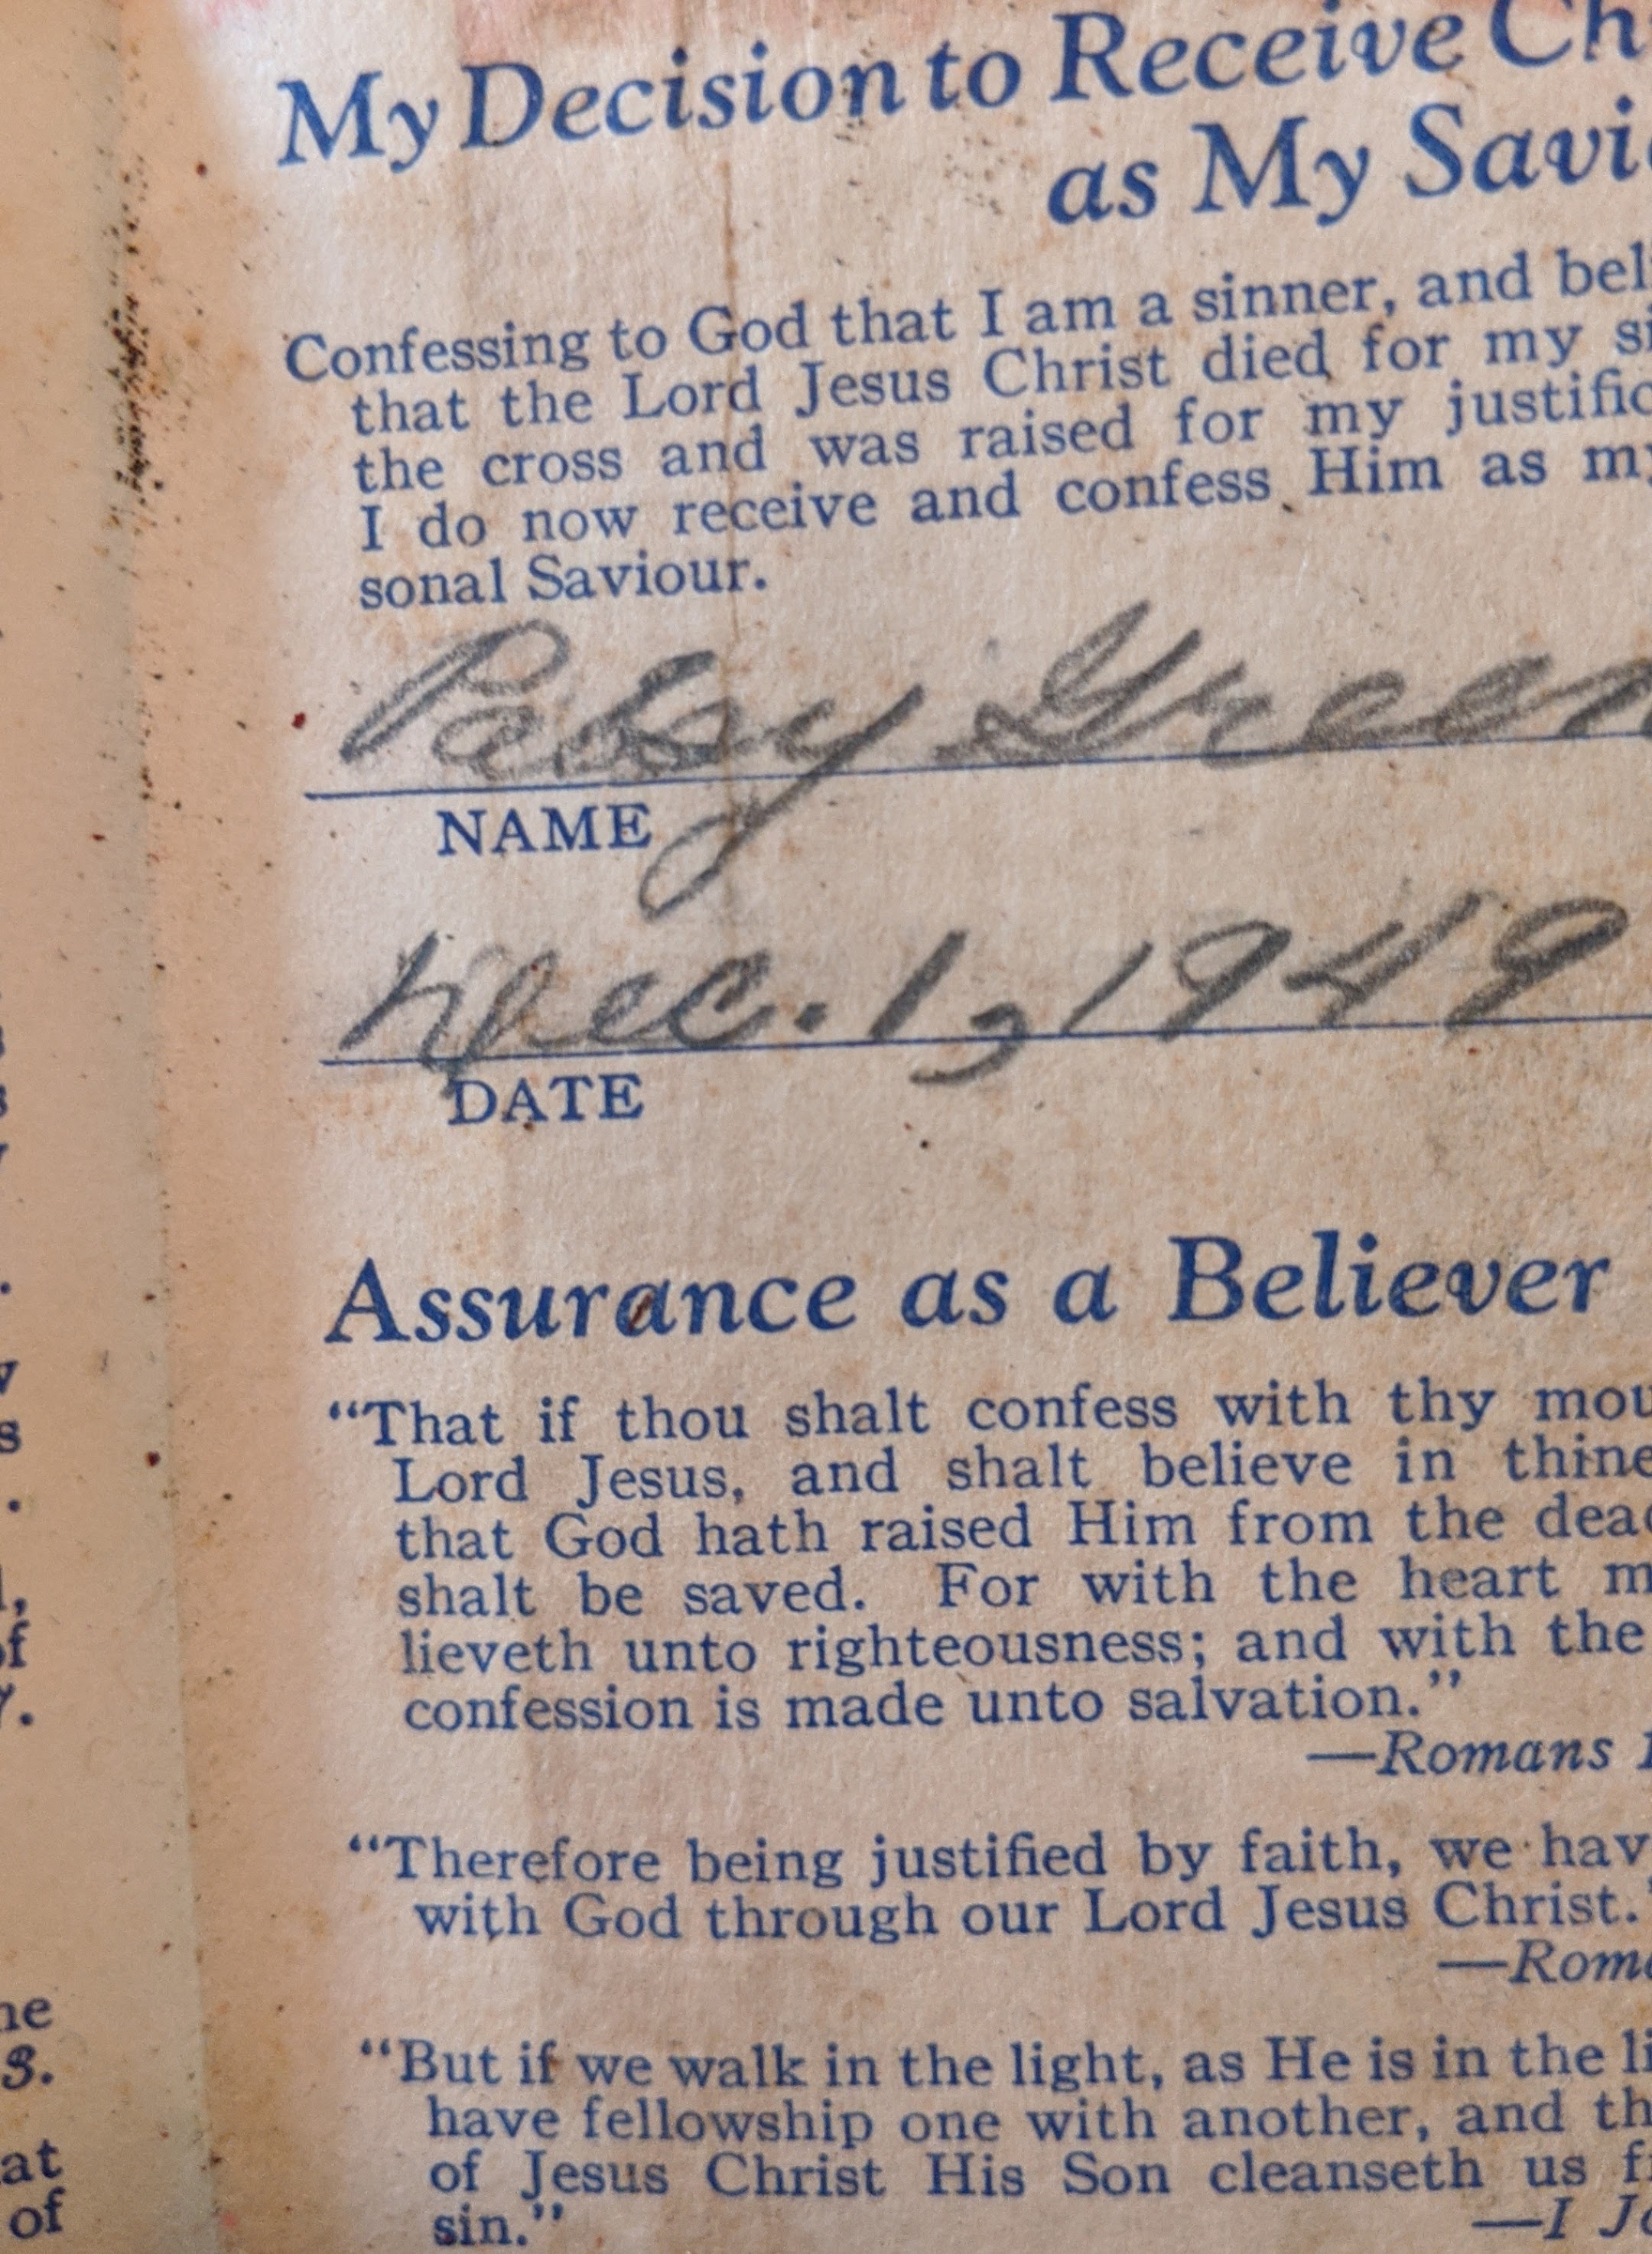 My Decision to Receive Ch
as My Savi
Confessing to God that I am a sinner, and bel
that the Lord Jesus Christ died for my si
the cross and was raised for my justific
I do now receive and confess Him as my
sonal Saviour.
Patsy Green
NAME
Dec. 1, 1949
DATE
Assurance as a Believer
“That if thou shalt confess with thy mou
Lord Jesus, and shalt believe in thine
that God hath raised Him from the dead
shalt be saved. For with the heart m
lieveth unto righteousness; and with the
confession is made unto salvation.”
—Romans 1
“Therefore being justified by faith, we hav
with God through our Lord Jesus Christ.”
—Roma
“But if we walk in the light, as He is in the li
have fellowship one with another, and th
of Jesus Christ His Son cleanseth us fr
sin.”
—I Jo